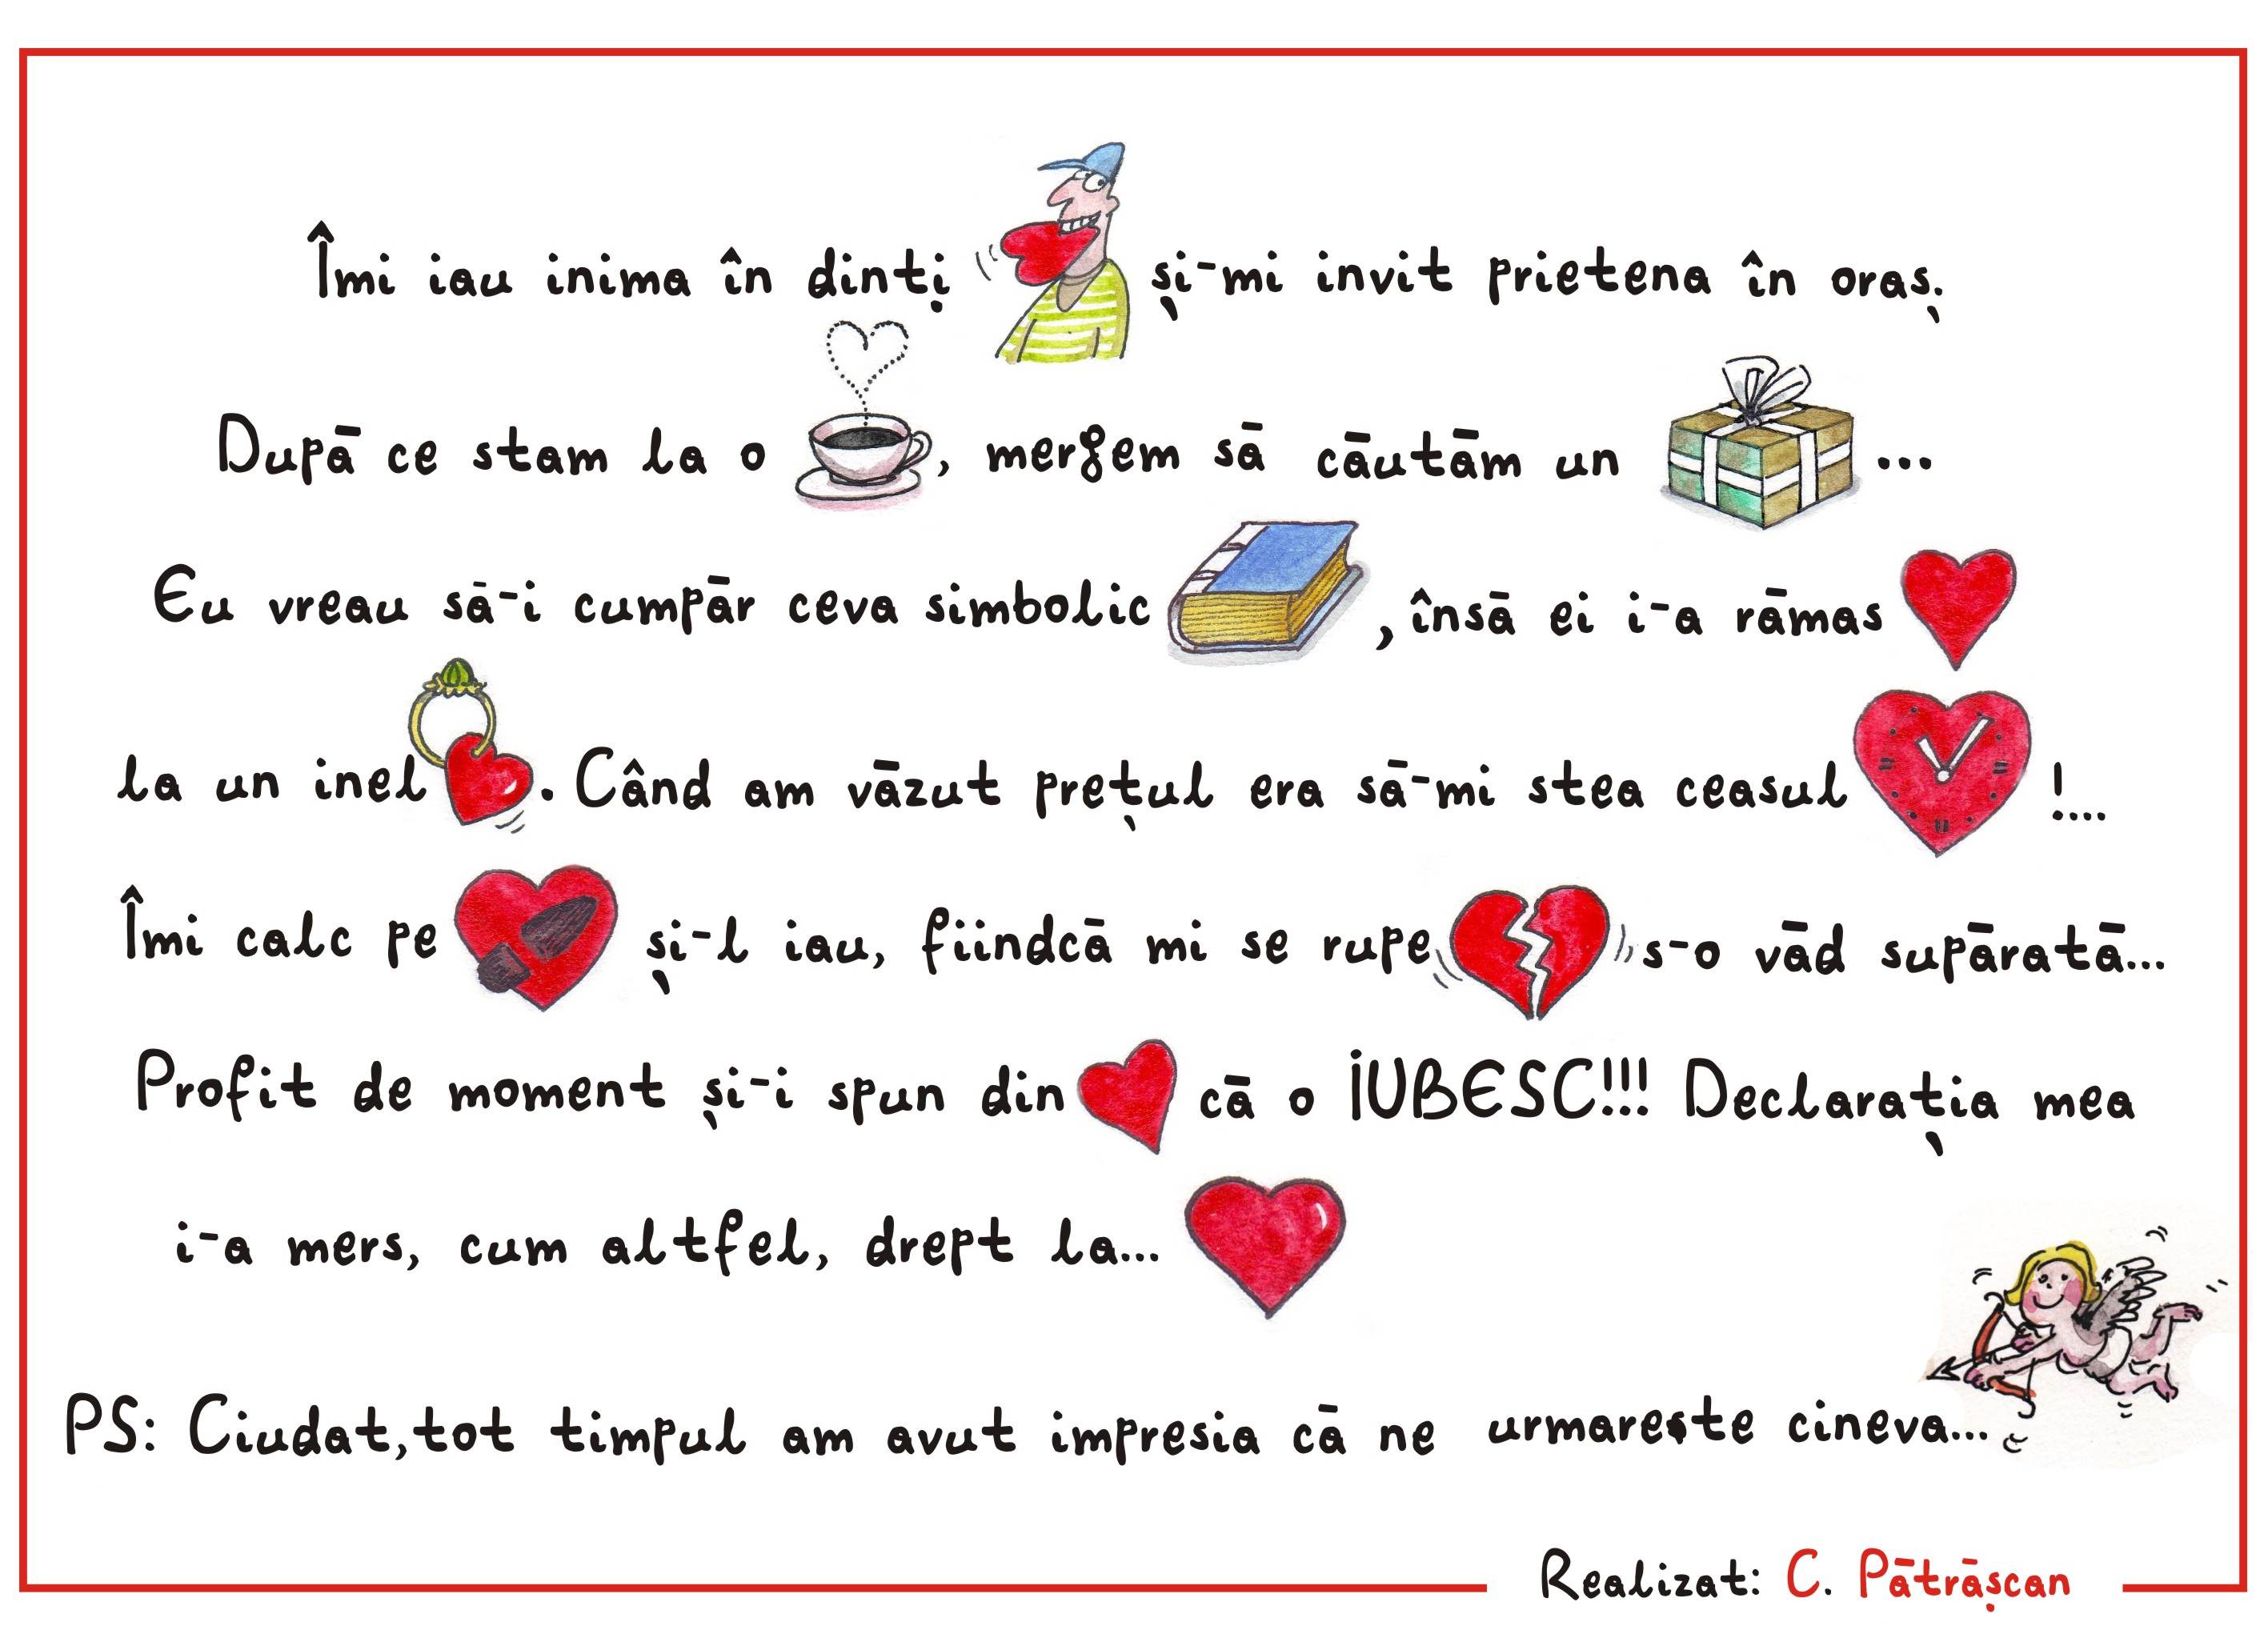 Îmi iau inima în dinți și-mi invit prietena în oraș.
După ce stam la o , mergem să căutăm un ...
Eu vreau să-i cumpăr ceva simbolic , însă ei i-a rămas
la un inel . Când am văzut prețul era să-mi stea ceasul !....
Îmi calc pe și-l iau, fiindcă mi se rupe s-o văd supărată...
Profit de moment și-i spun din că o IUBESC!!! Declarația mea
i-a mers, cum altfel, drept la...
PS: Ciudat, tot timpul am avut impresia că ne urmareste cineva...
Realizat: C. Pătrășcan